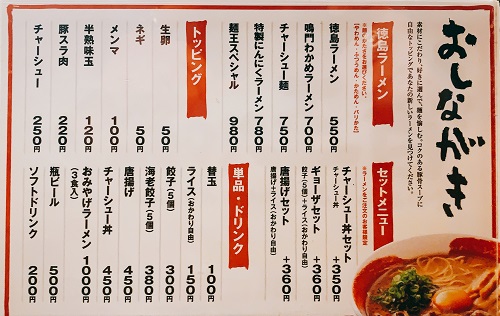 おしながき
素材にこだわり、好きに選んで、麺を愉しむ。コクのある豚骨スープに
自由なトッピングであなたの新しいラーメンを見つけてください。
徳島ラーメン
※麺のかたさをお選びください。
(やわめん・ふつうめん・かためん・バリかた)
徳島ラーメン 550円
鳴門わかめラーメン 700円
チャーシュー麺 750円
特製にんにくラーメン 780円
麺王スペシャル 980円
トッピング
生卵 50円
ネギ 50円
メンマ 100円
半熟味玉 120円
豚スラ肉 220円
チャーシュー 250円
セットメニュー
※ラーメンをご注文のお客様限定
チャーシュー丼セット
チャーシュー丼 +350円
ギョーザセット
餃子(5個)+ライス(おかわり自由) +360円
唐揚げセット
唐揚げ+ライス(おかわり自由) +360円
単品・ドリンク
替玉 100円
ライス(おかわり自由) 150円
餃子(5個) 300円
海老餃子(5個) 380円
唐揚げ 450円
チャーシュー丼 450円
おみやげラーメン 1000円
(3食入)
瓶ビール 500円
ソフトドリンク 200円